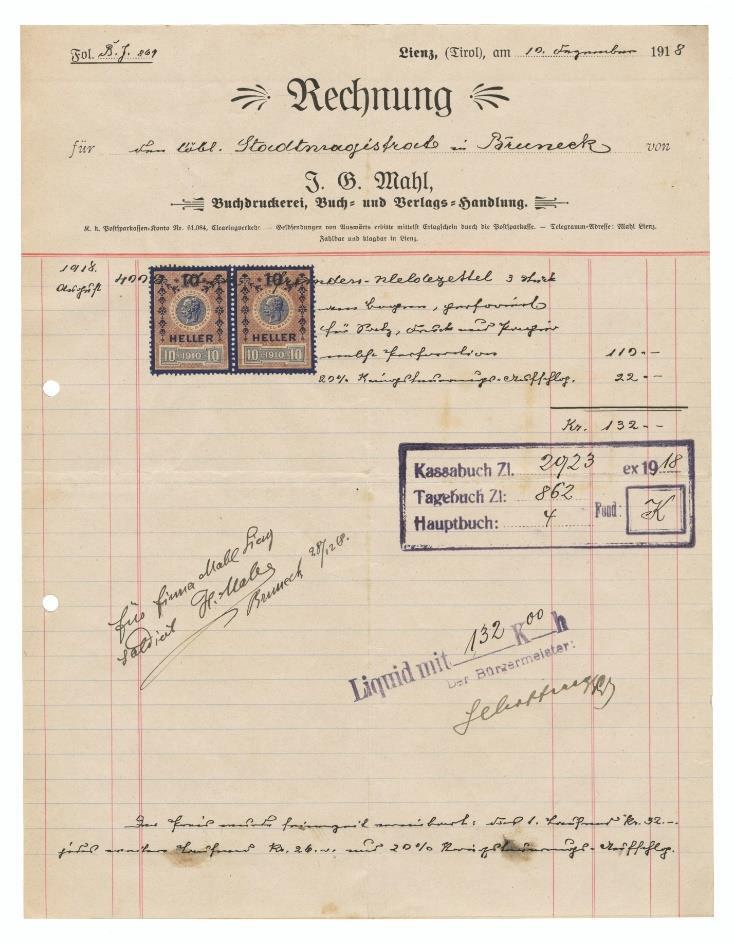 Fol. B. J. 869
Lienz, (Tirol), am 10. Dezember 1918
Rechnung
für den löbl. Stadtmagistrat in Bruneck von
J. G. Mahl,
Buchdruckerei, Buch- und Verlags-Handlung.
K. k. Postsparkassen-Konto Nr. 61.084, Clearingverkehr. — Geldsendungen von Auswärts erbitte mittelst Erlagschein durch die Postsparkasse. — Telegramm-Adresse: Mahl Lienz.
Zahlbar und klagbar in Lienz.
1918.
August 400 -Meldezettel 3 Stück
10 10
HELLER HELLER
10 1910 10 10 1910 10
am Bogen, perforiert
für Satz, Druck und Papier
nebst Perforation 110.--
20% Kriegsteuerungs-Aufschlag. 22.--
Kr. 132.--
Kassabuch Zl. 2923 ex 1918
Tagebuch Zl: 862
Hauptbuch: 4 Fond: K
für Firma Mahl Lienz
saldiert H. Mahl
Bruneck 28/12 18.
Liquid mit 132 K 00 h
Der Bürgermeister:
Der Preis wurde seinerzeit vereinbart: das 1. Tausend Kr. 32.--
jedes weitere Tausend Kr. 26.-- und 20% Kriegsteuerungs-Aufschlag.